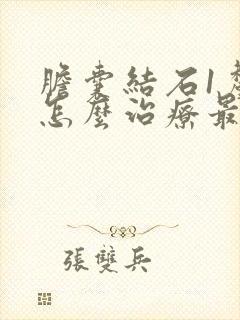 膽囊結石1
怎麼治療最
張雙兵